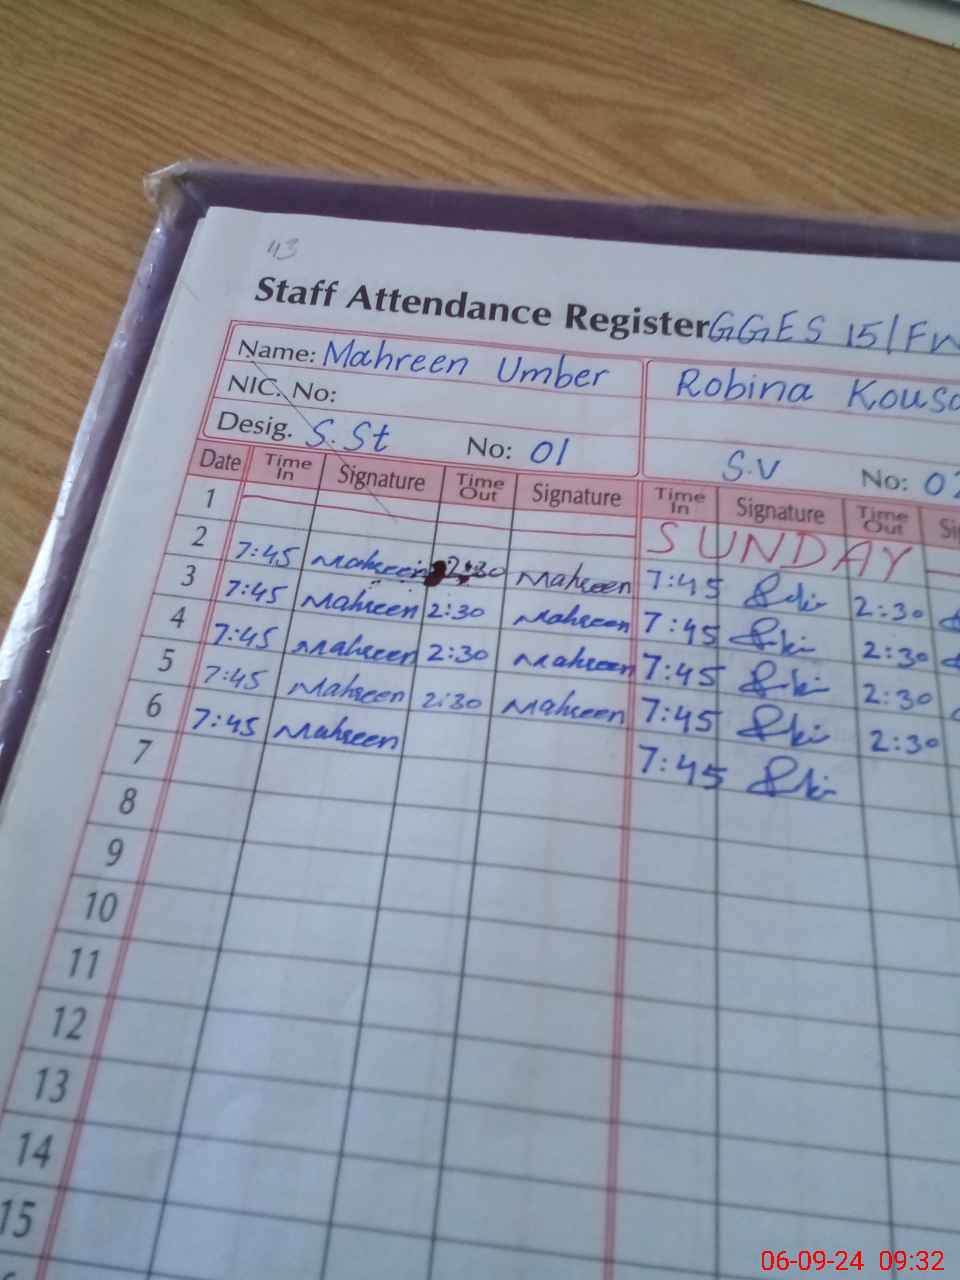 43
Staff Attendance Register GGES 15/FW
Name: Mahreen Umber Robina
NIC. No:
Desig. S.St No: 01 S.V No:
Date Time In Signature Time Out Signature Time In Signature Time Out
1 SUNDAY
2 7:45 Mahreen 2:30 Mahreen 7:45 2:30
3 7:45 Mahreen 2:30 Mahreen 7:45 2:30
4 7:45 Mahreen 2:30 Mahreen 7:45 2:30
5 7:45 Mahreen 2:30 Mahreen 7:45 2:30
6 7:45 Mahreen 7:45
7
8
9
10
11
12
13
14
15
06-09-24 09:32